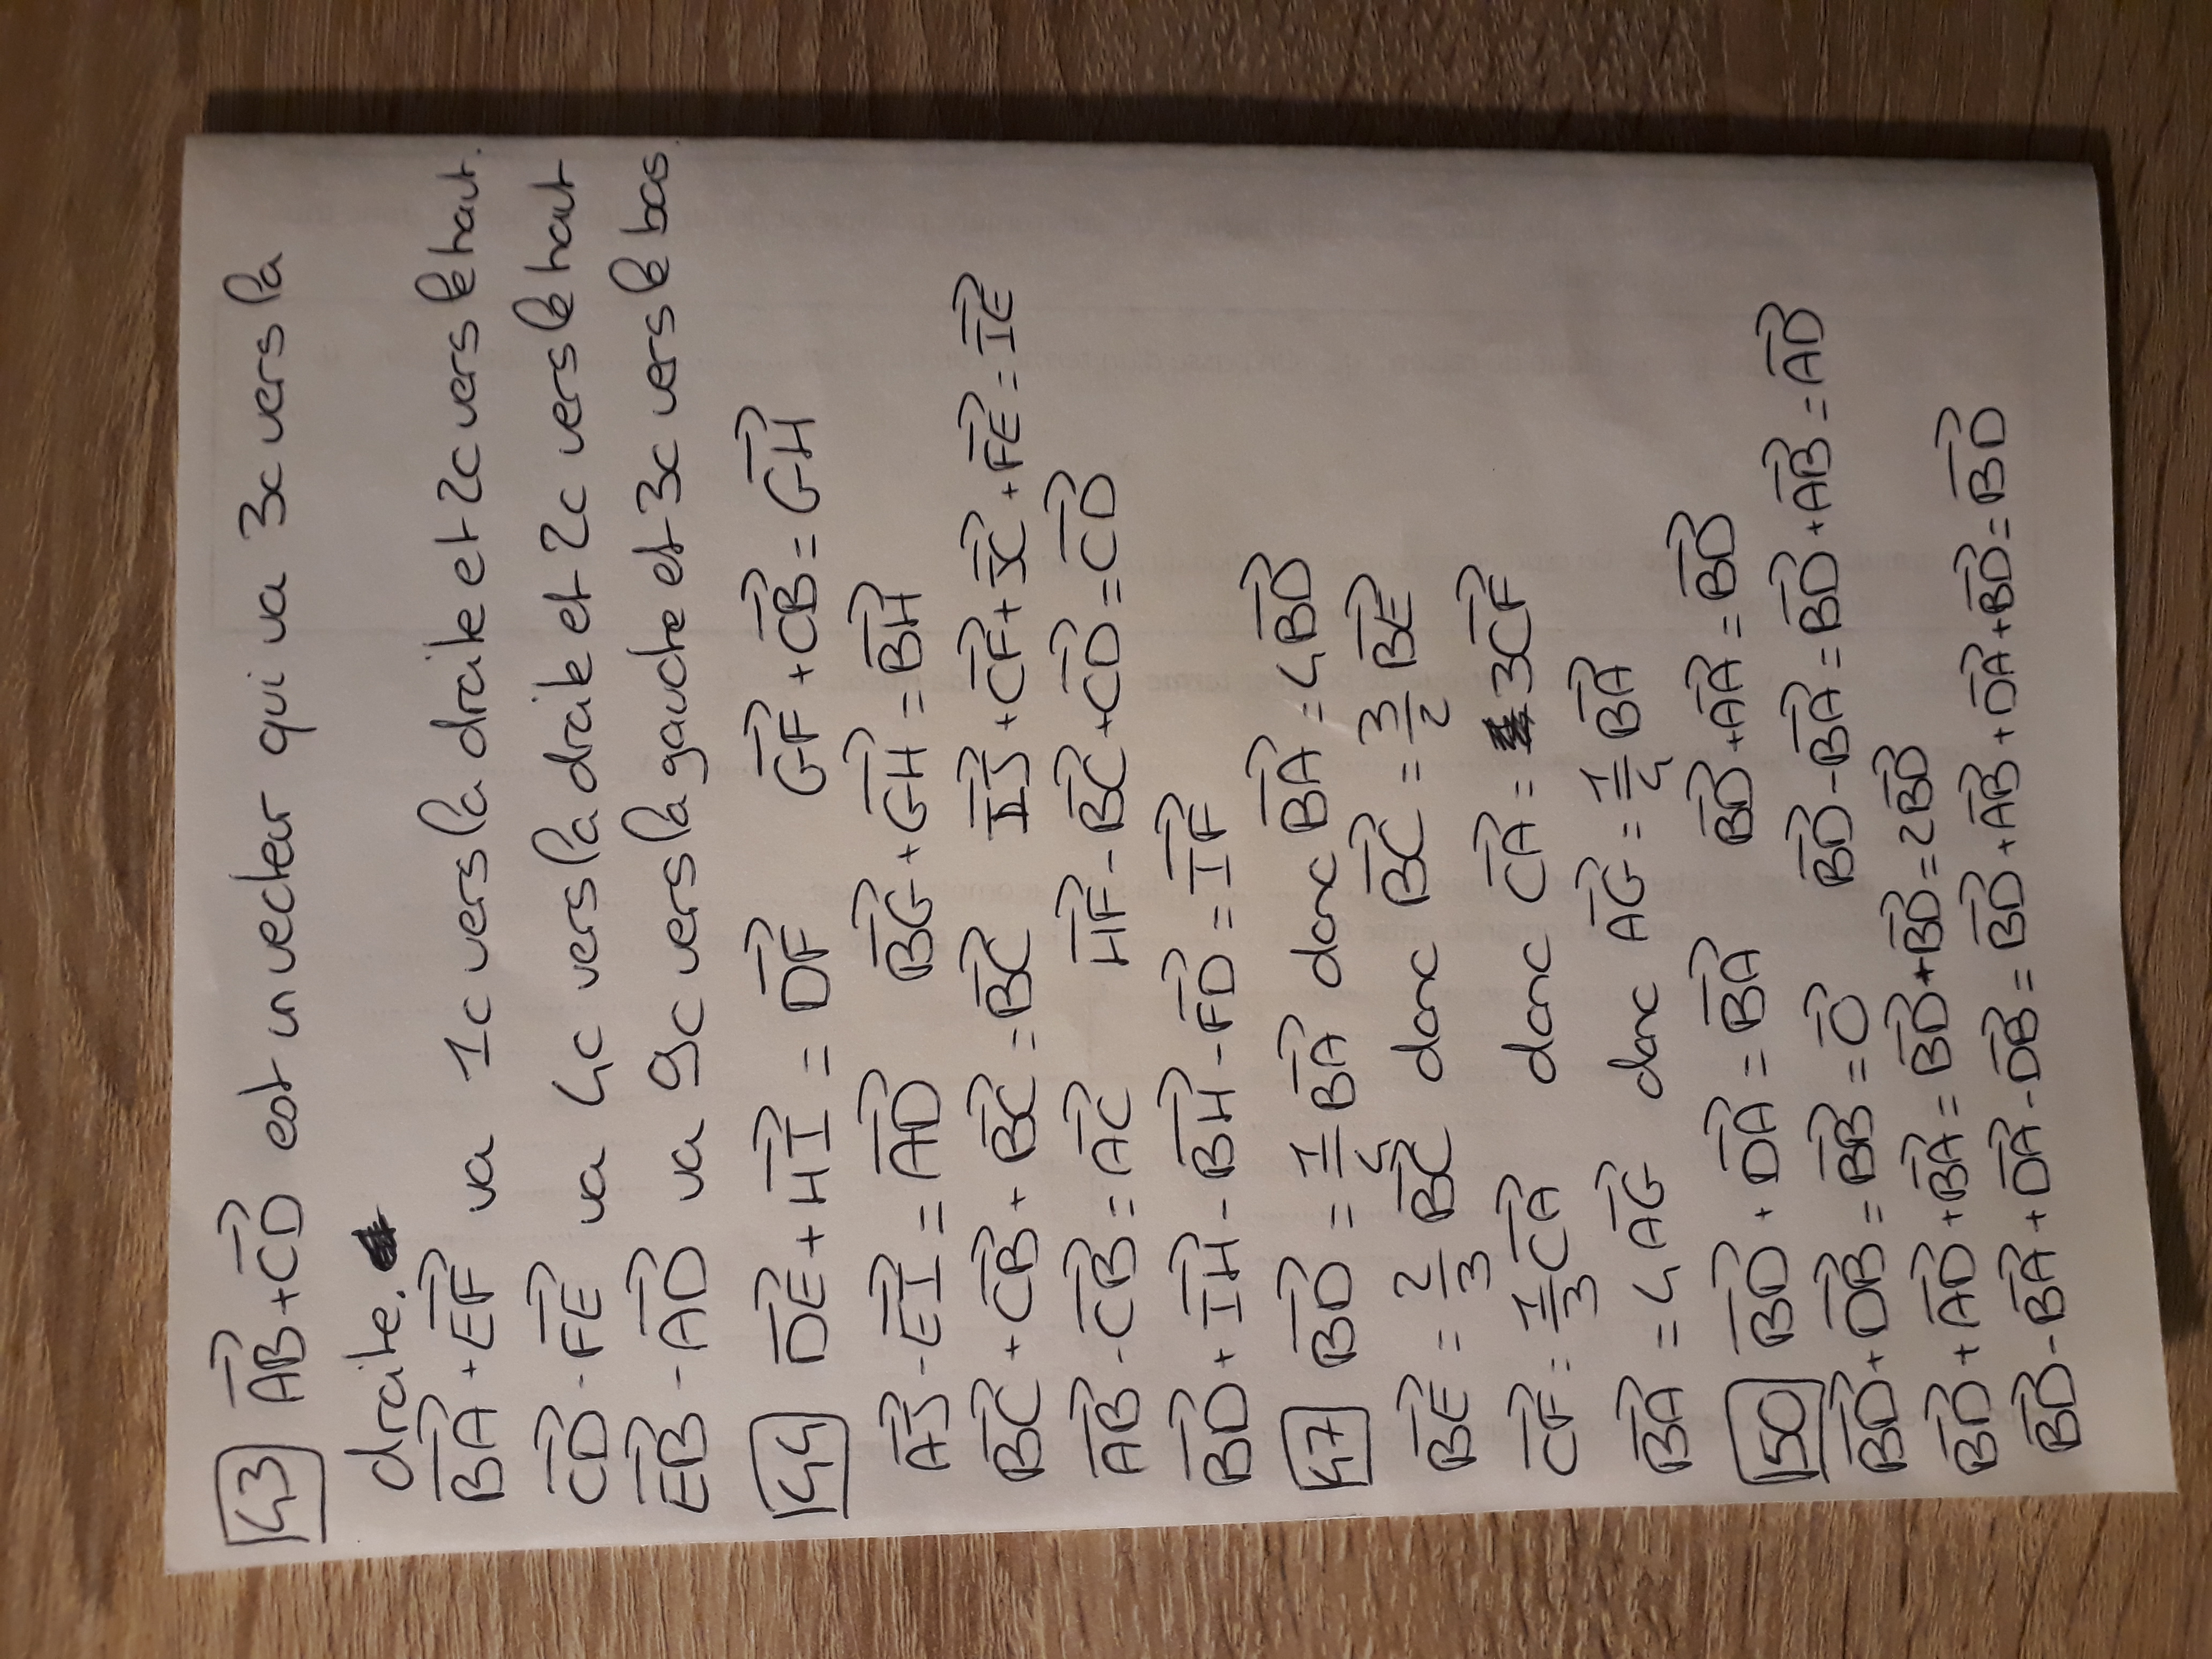 43 AB→ + CD→ est un vecteur qui va 3c vers la
droite.
BA→ + EF→ va 1c vers la droite et 2c vers le haut.
CD→ - FE→ va 4c vers la droite et 2c vers le haut
EB→ - AD→ va 9c vers la gauche et 3c vers le bas.
44 DE→ + HI→ = DF→ GF→ + CB→ = GH→
AJ→ - EI→ = AD→ BG→ + GH→ = BH→
BC→ + CB→ + BC→ = BC→ IJ→ + CF→ + JC→ + FE→ = IE→
AB→ - CB→ = AC→ HF→ - BC→ + CD→ = CD→
BD→ + IH→ - BH→ - FD→ = IF→
47 BD→ = 1/4 BA→ donc BA→ = 4BD→
BE→ = 2/3 BC→ donc BC→ = 3/2 BE→
CF→ = 1/3 CA→ donc CA→ = 3CF→
BA→ = 4AG→ donc AG→ = 1/4 BA→
50 BD→ + DA→ = BA→ BD→ + AA→ = BD→
BD→ + DB→ = BB→ = 0→ BD→ - BA→ = BD→ + AB→ = AD→
BD→ + AD→ + BA→ = BD→ + BD→ = 2BD→
BD→ - BA→ + DA→ - DB→ = BD→ + AB→ + DA→ + BD→ = BD→